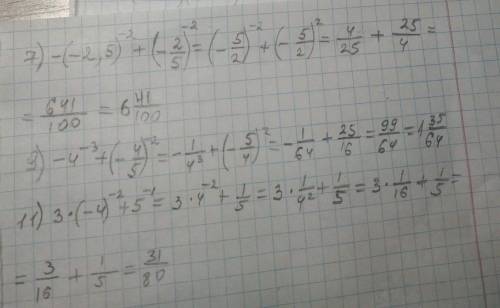 7) -(-2,5)^{-2} + (-\frac{2}{5})^{-2} = (-\frac{5}{2})^{-2} + (-\frac{5}{2})^{2} = \frac{4}{25} + \frac{25}{4} =
= \frac{641}{100} = 6\frac{41}{100}
9) -4^{-3} + (-\frac{4}{5})^{-2} = -\frac{1}{4^3} + (-\frac{5}{4})^{2} = -\frac{1}{64} + \frac{25}{16} = \frac{99}{64} = 1\frac{35}{64}
11) 3 \cdot (-4)^{-2} + 5^{-1} = 3 \cdot 4^{-2} + \frac{1}{5} = 3 \cdot \frac{1}{4^2} + \frac{1}{5} = 3 \cdot \frac{1}{16} + \frac{1}{5} =
= \frac{3}{16} + \frac{1}{5} = \frac{31}{80}